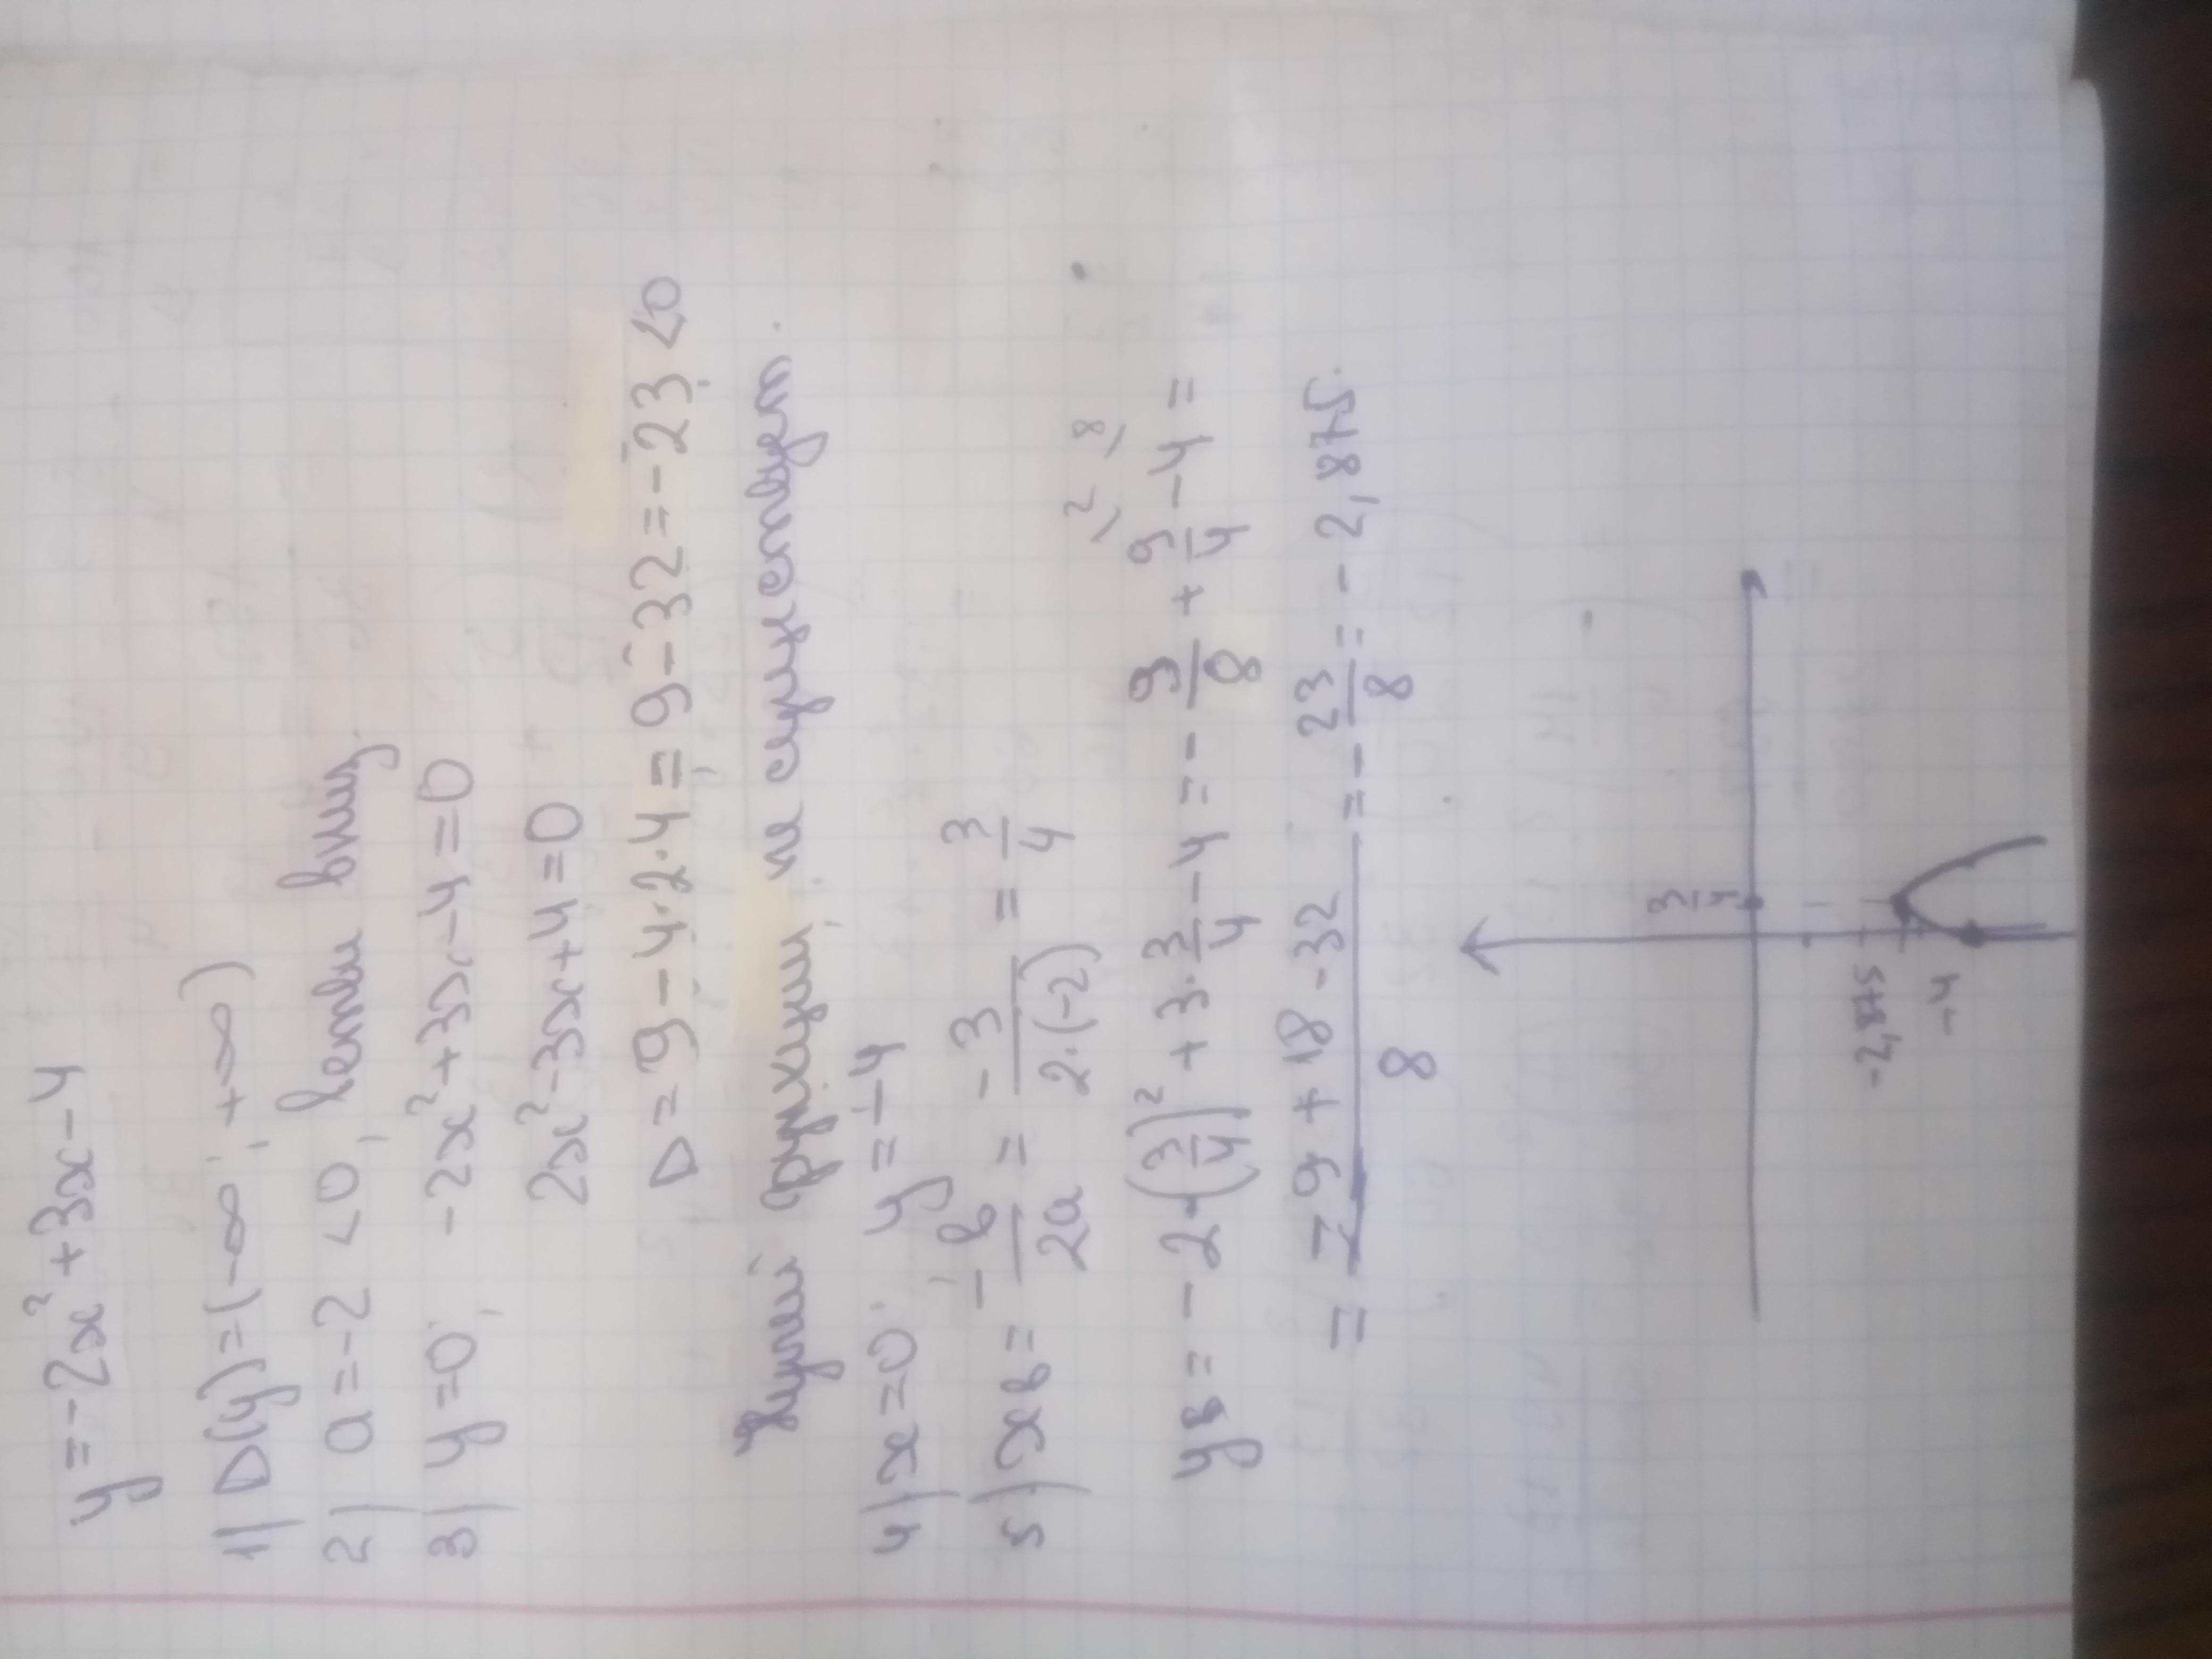 y = -2x² + 3x - 4
1) D(y) = (-∞; +∞)
2) a = -2 < 0, ветви вниз.
3) y = 0, -2x² + 3x - 4 = 0
2x² - 3x + 4 = 0
D = 9 - 4·2·4 = 9 - 32 = -23 < 0
Нулей функции не существует.
4) x = 0; y = -4
5) xв = -b/2a = -3/(2·(-2)) = 3/4
yв = -2·(3/4)² + 3·3/4 - 4 = -9/8 + 9/4 \2 - 4 \8 =
= (-9 + 18 - 32)/8 = -23/8 = -2,875.
3/4
-2,875
-4